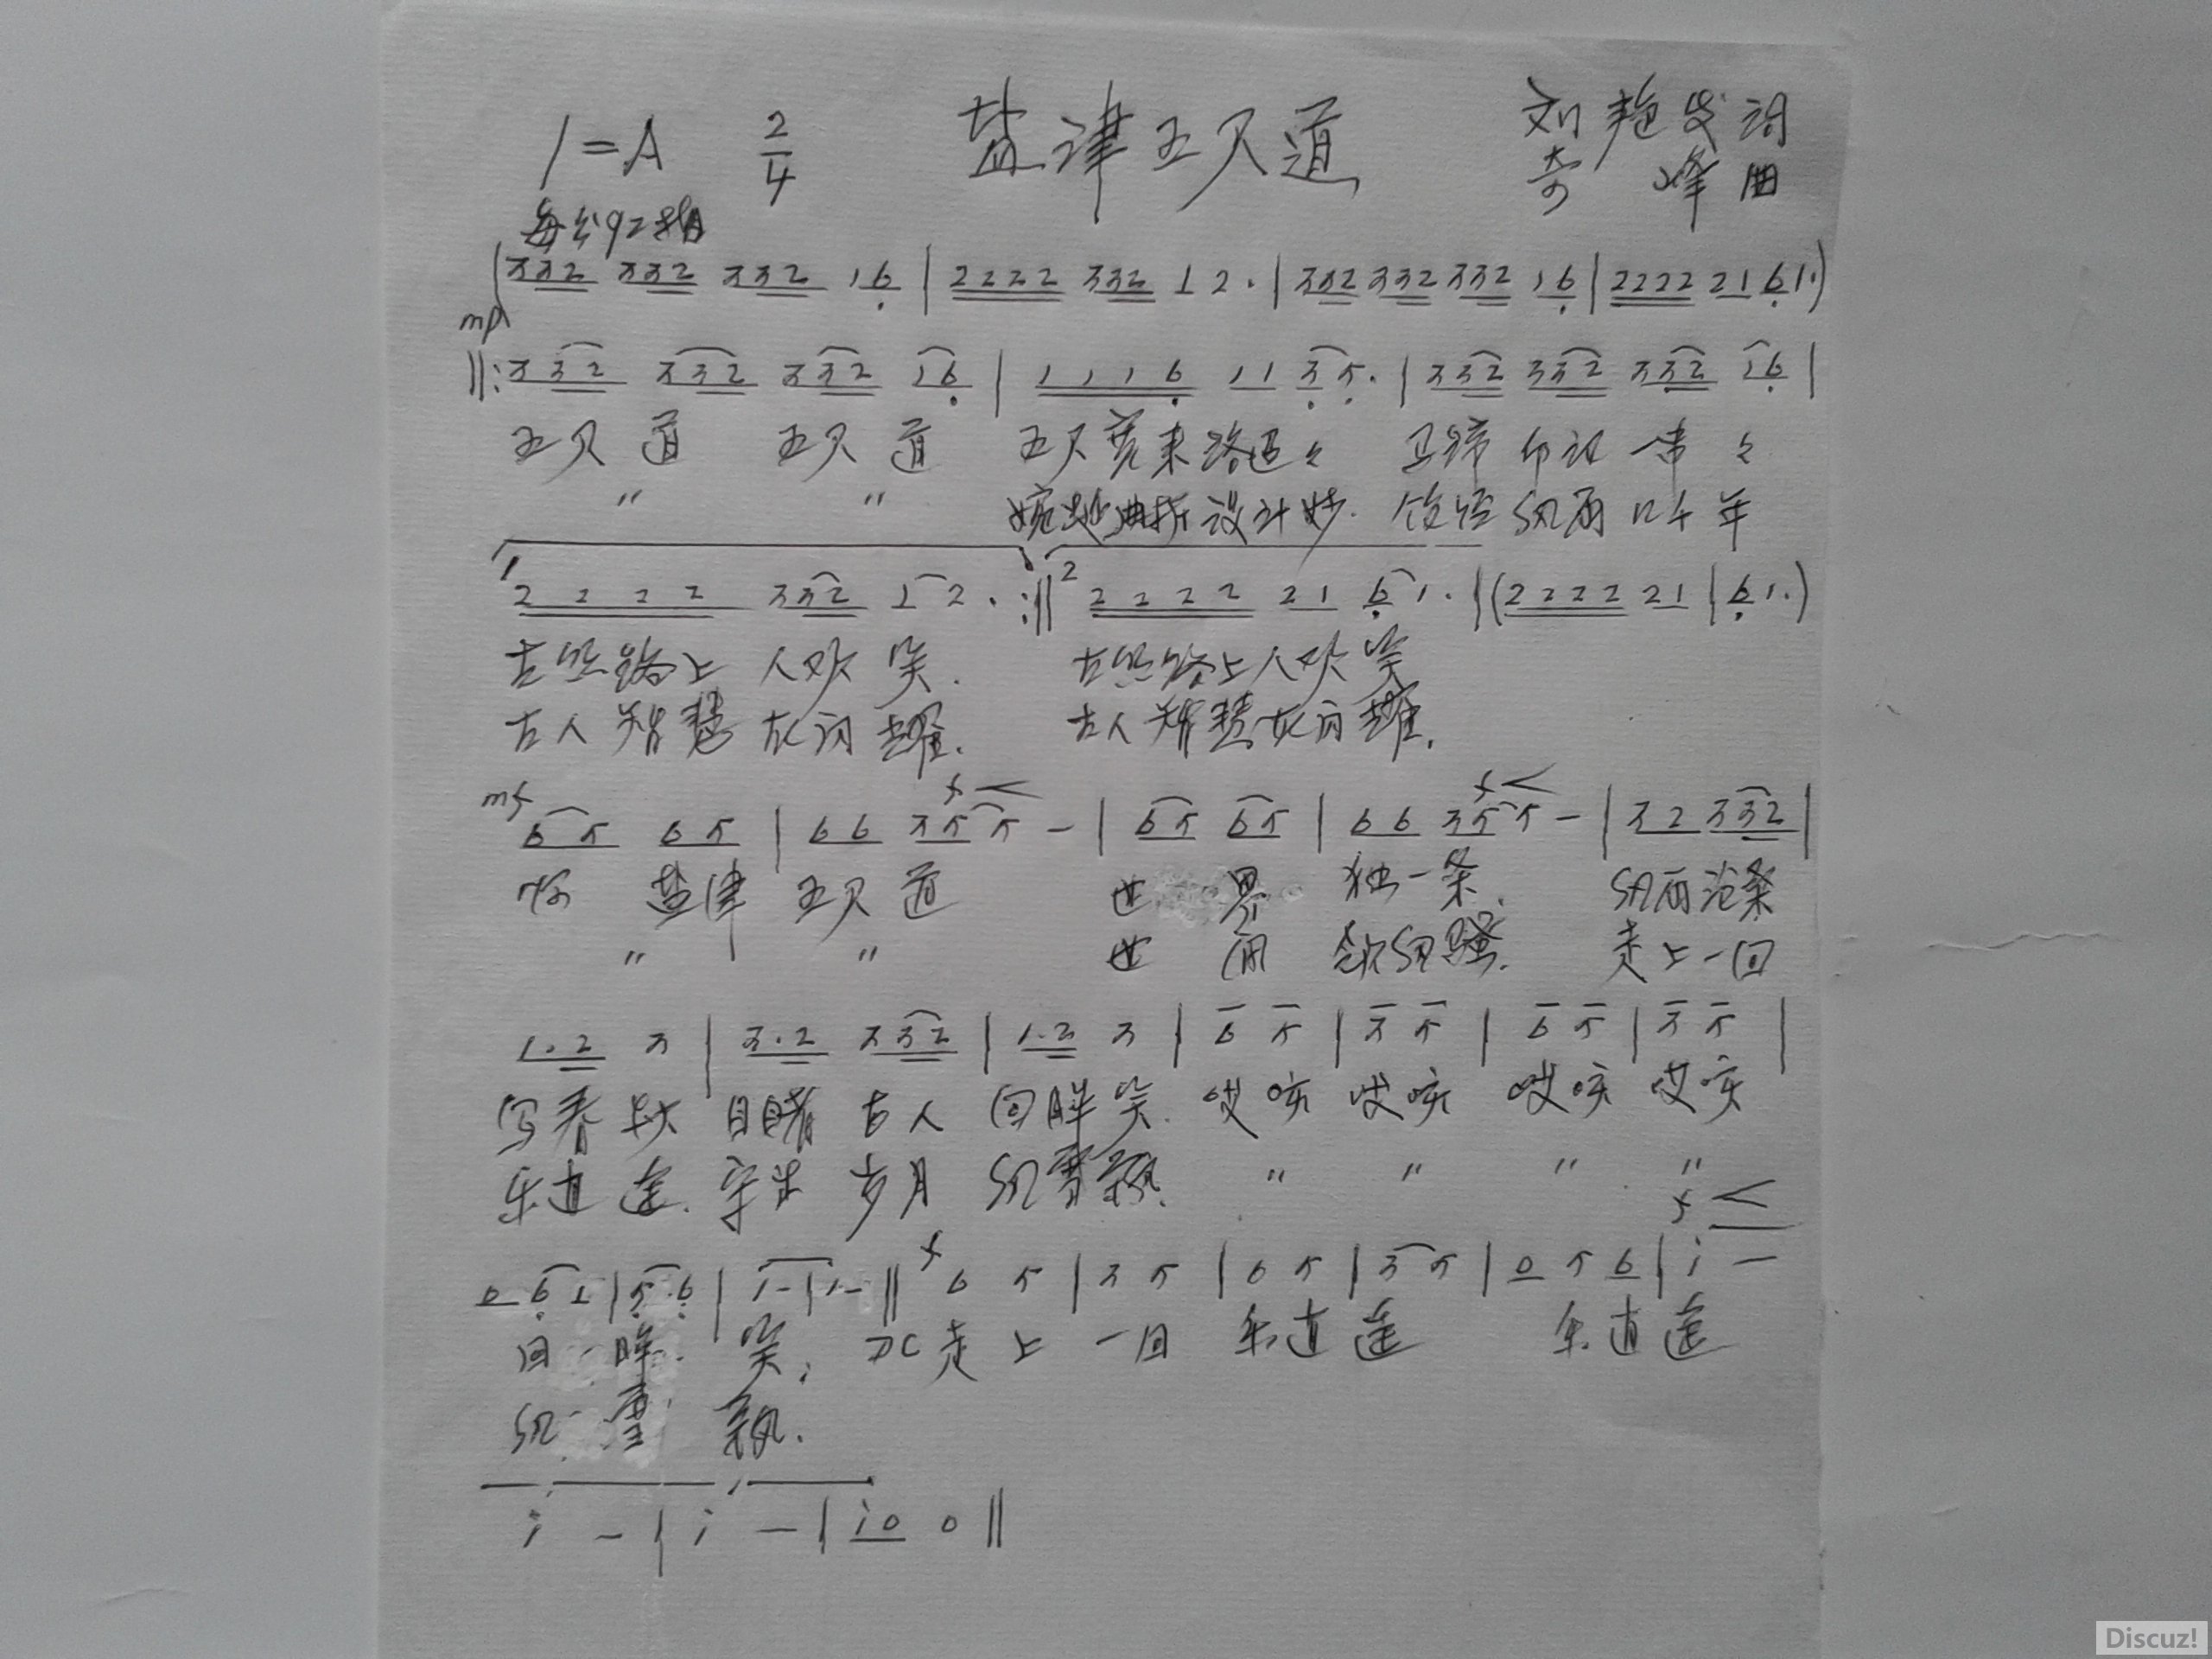 1=A 2/4 盐津五尺道 刘艳发词
每分92拍 奇峰曲
(332 332 332 16 | 2222 332 1 2. | 332 332 332 16 | 2222 21 61.)
mp
||: 332 332 332 16 | 1116 11 35. | 332 332 332 16 |
五尺道 五尺道 五尺宽来路迢々 马蹄印记一串々
" " 婉延曲折设计妙. 饱经风雨几千年
1 2222 332 1 2. :|| 2 2222 21 61. | (2222 21 | 61.)
古丝路上人欢笑. 古丝路上人欢笑
古人智慧在闪耀. 古人智慧在闪耀.
mf f< f<
65 65 | 66 355 - | 65 65 | 66 355 - | 32 332 |
啊 盐津五尺道 世界独一条. 风雨沧桑
" " 世间领风骚. 走上一回
1.2 3 | 3.2 332 | 1.2 3 | 6 5 | 3 5 | 6 5 | 3 5 |
写春秋 目睹古人回眸笑. 哎咳 哎咳 哎咳 哎咳
乐逍遥. 牢出岁月风雪飘. " " " "
f <
0 6 1 | 5 6 | 1 - | 1 - || f 6 5 | 3 5 | 6 5 | 3 5 | 0 5 6 | i -
回眸 笑; DC 走上一回 乐逍遥 乐逍遥
风雪 飘.
i - | i - | i0 0 ||
Discuz!